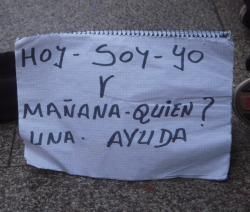 HOY - SOY - YO
Y
MAÑANA - QUIEN?
UNA. AYUDA